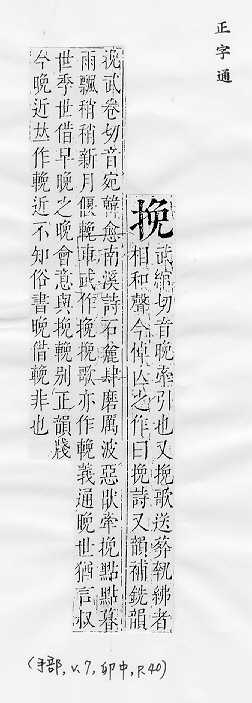 正字通
挽
武綰切音晚牽引也又挽歌送葬執紼者
相和聲今悼亾之作曰挽詩又韻補銑韻
挽武卷切音宛韓愈南溪詩石麄肆磨厲波惡牽挽點點暮
雨飄稍稍新月偃輓車或作挽挽歌亦作輓義通晚世猶言叔
世季世借早晚之晚會意與挽輓別正韻牋
今晚近𠀤作輓近不知俗書晚借輓非也
(手部, v.7, 卯中, P.40)